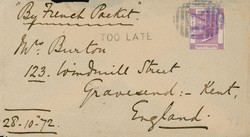 "By French Packet".
TOO LATE
Mr. Burton
123. Windmill Street
Gravesend:- Kent,
England.
28-10-72.